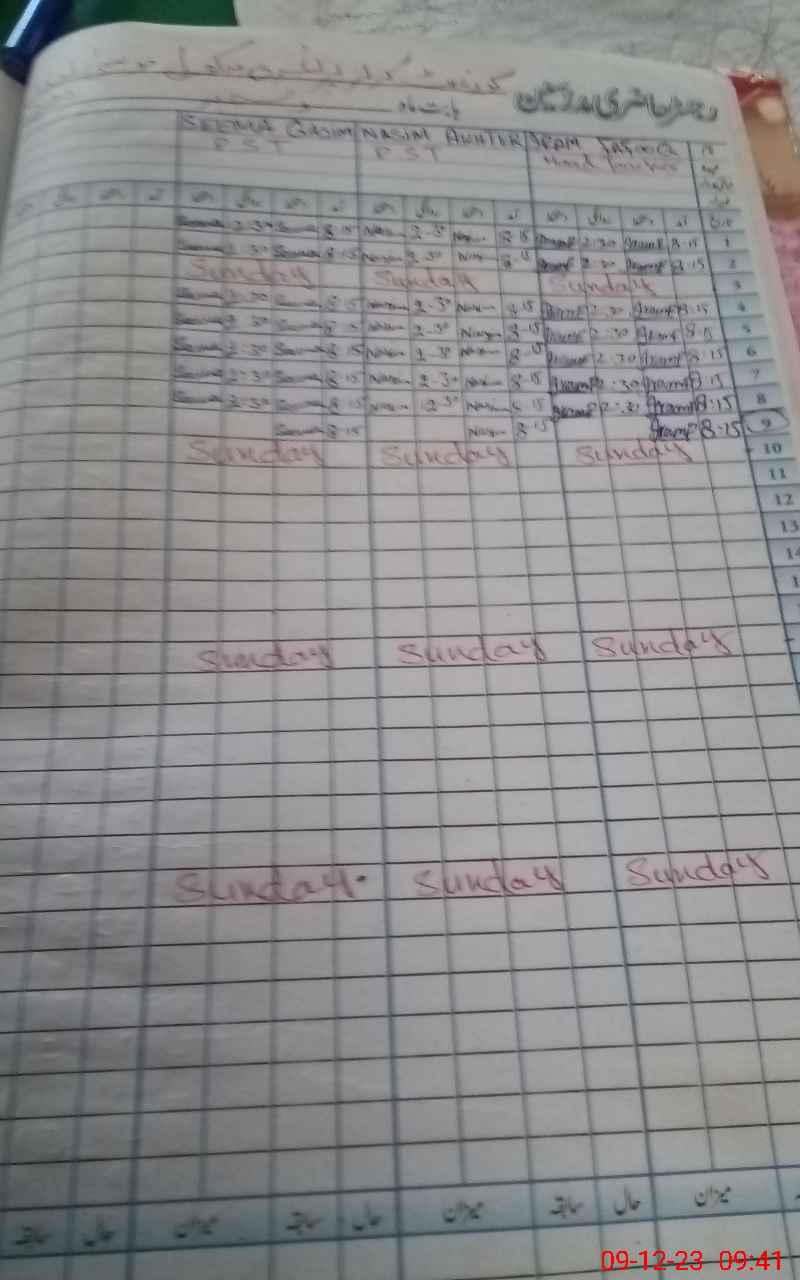 رجسٹر حاضری مدرسین
گورنمنٹ گرلز پرائمری سکول
بابت ماہ
SEEMA QASIM NASIM AKHTUR IRAM FAROOQ
PST PST Head
Seema 2-30 Seema 8-15 Nasim 2-30 Nasim 8-15 Iram F 2-30 Iram F 8-15 1
Seema 2-30 Seema 8-15 Nasim 2-30 Nasim 8-15 Iram F 2-30 Iram F 8-15 2
Sunday Sunday Sunday 3
Seema 2-30 Seema 8-15 Nasim 2-30 Nasim 8-15 Iram F 2-30 Iram F 8-15 4
Seema 2-30 Seema 8-15 Nasim 2-30 Nasim 8-15 Iram F 2-30 Iram F 8-15 5
Seema 2-30 Seema 8-15 Nasim 2-30 Nasim 8-15 Iram F 2-30 Iram F 8-15 6
Seema 2-30 Seema 8-15 Nasim 2-30 Nasim 8-15 Iram F 2-30 Iram F 8-15 7
Seema 2-30 Seema 8-15 Nasim 2-30 Nasim 8-15 Iram F 2-30 Iram F 8-15 8
Seema 8-15 Nasim 8-15 Iram F 8-15 9
Sunday Sunday Sunday 10
11
12
13
14
Sunday Sunday Sunday
Sunday Sunday Sunday
میزان حال سابقہ میزان حال سابقہ میزان حال سابقہ
09-12-23 09:41